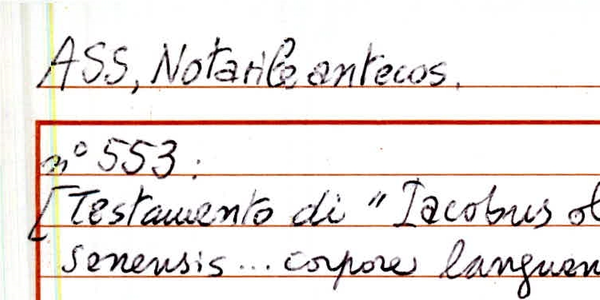 ASS, Notarile antecos.
n° 553.
[Testamento di "Iacobus
senensis... corpore